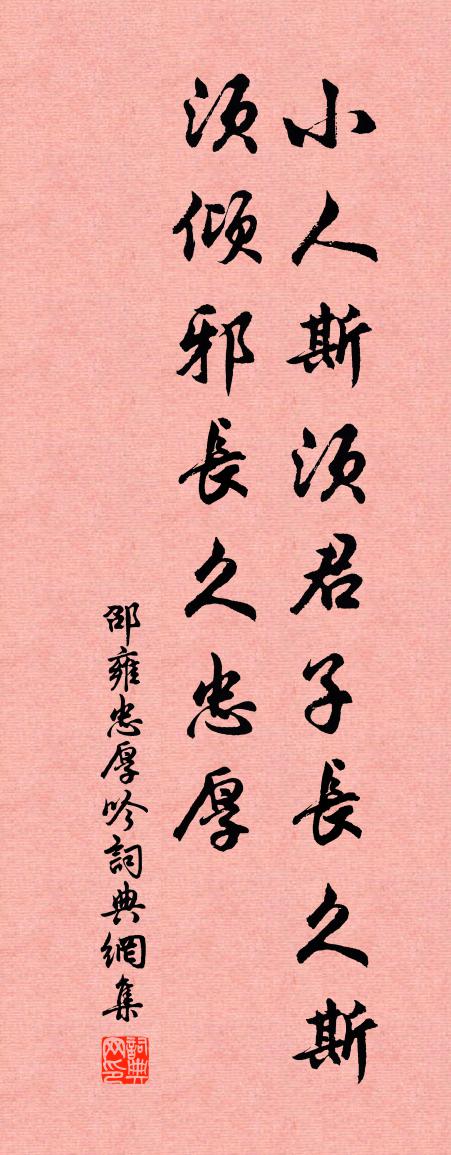 小人斯須君子長久斯
須傾邪長久忠厚
邵雍忠厚吟詞典網集
詞典网印